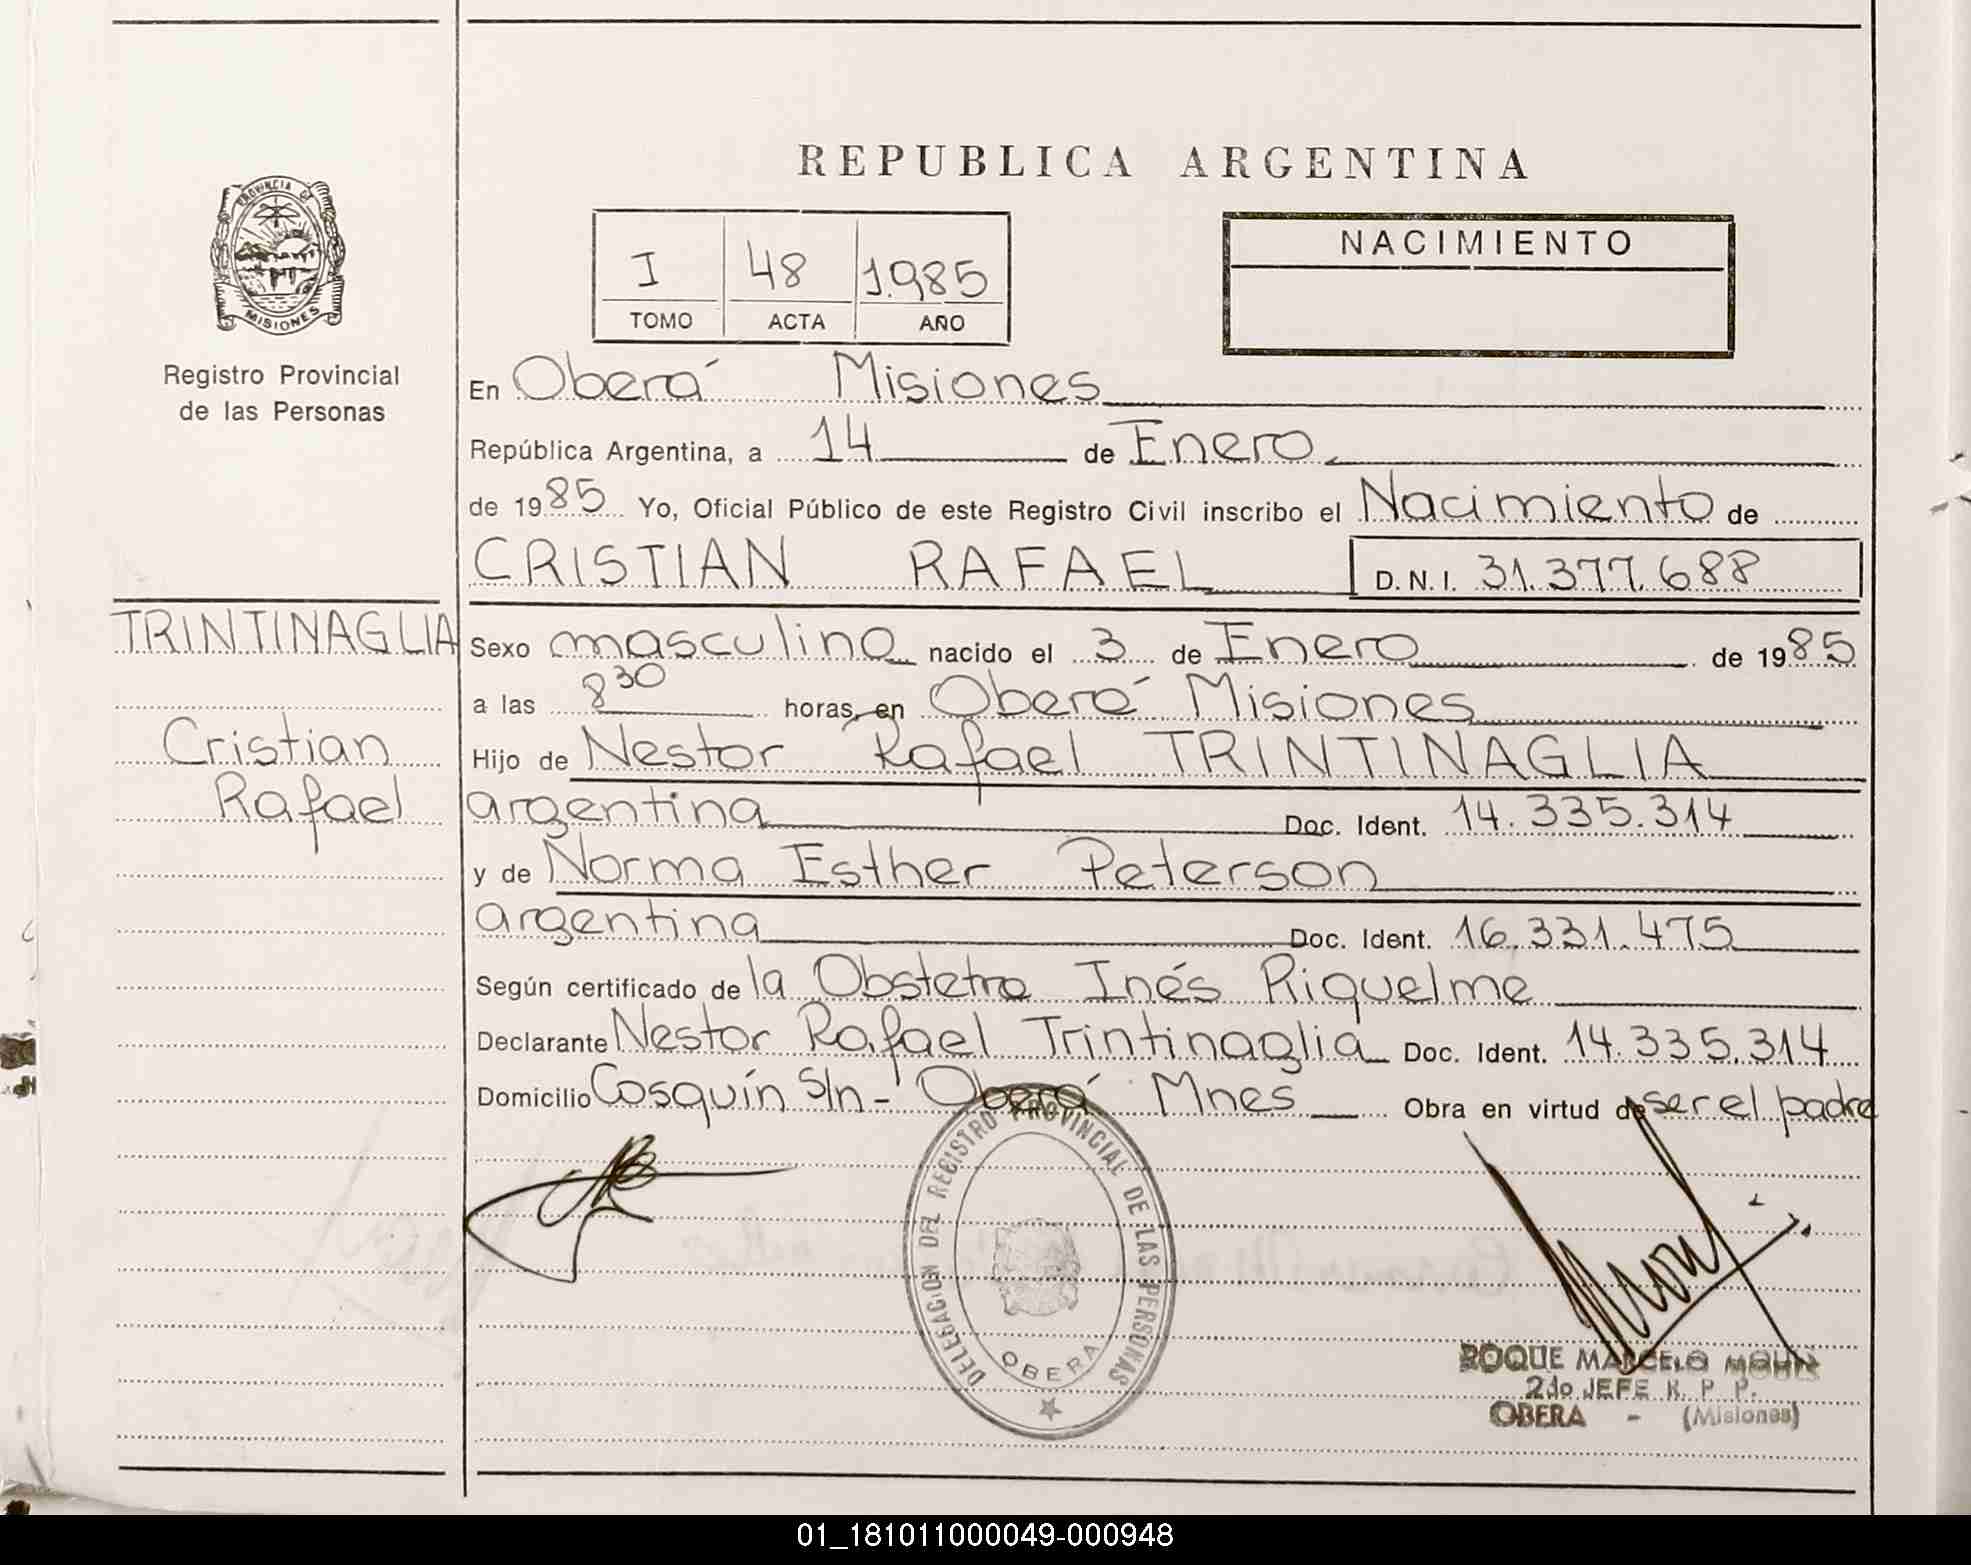 REPUBLICA ARGENTINA
PROVINCIA DE
MISIONES
Registro Provincial
de las Personas
I 48 1.985
TOMO ACTA AÑO
NACIMIENTO
En Oberá Misiones
República Argentina, a 14 de Enero
de 1985 Yo, Oficial Público de este Registro Civil inscribo el Nacimiento de
CRISTIAN RAFAEL D.N.I. 31.377.688
TRINTINAGLIA
Cristian
Rafael
Sexo masculino nacido el 3 de Enero de 1985
a las 8 30 horas, en Oberá Misiones
Hijo de Nestor Rafael TRINTINAGLIA
argentina Doc. Ident. 14.335.314
y de Norma Esther Peterson
argentina Doc. Ident. 16.331.475
Según certificado de la Obstetra Inés Riquelme
Declarante Nestor Rafael Trintinaglia Doc. Ident. 14.335.314
Domicilio Cosquín S/n - Oberá Mnes Obra en virtud de ser el padre
DELEGACION DEL REGISTRO PROVINCIAL DE LAS PERSONAS
OBERA
ROQUE MARCELO
2do JEFE R. P. P.
OBERA - (Misiones)
01_181011000049-000948